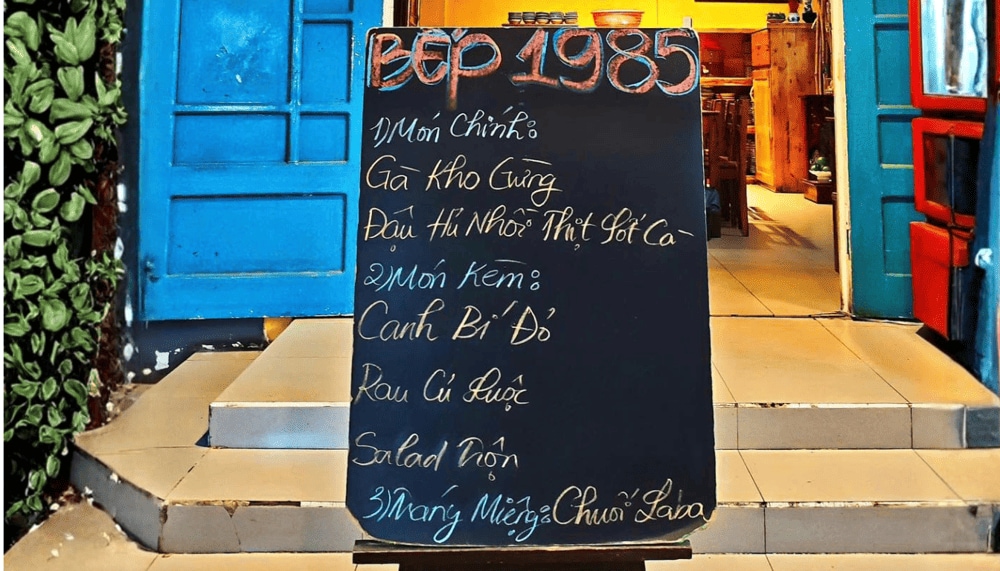 BẾP 1985
1) Món Chính:
Gà Kho Gừng
Đậu Hủ Nhồi Thịt Sốt Cà
2) Món Kèm:
Canh Bí Đỏ
Rau Củ Luộc
Salad Trộn
3) Tráng Miệng: Chuối Laba